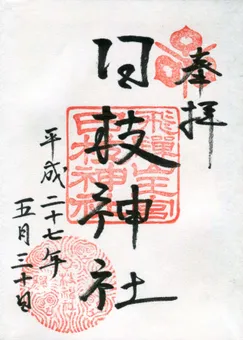 奉拝
日枝神社
飛騨生宮
日枝神社
平成二十七年
五月三十日